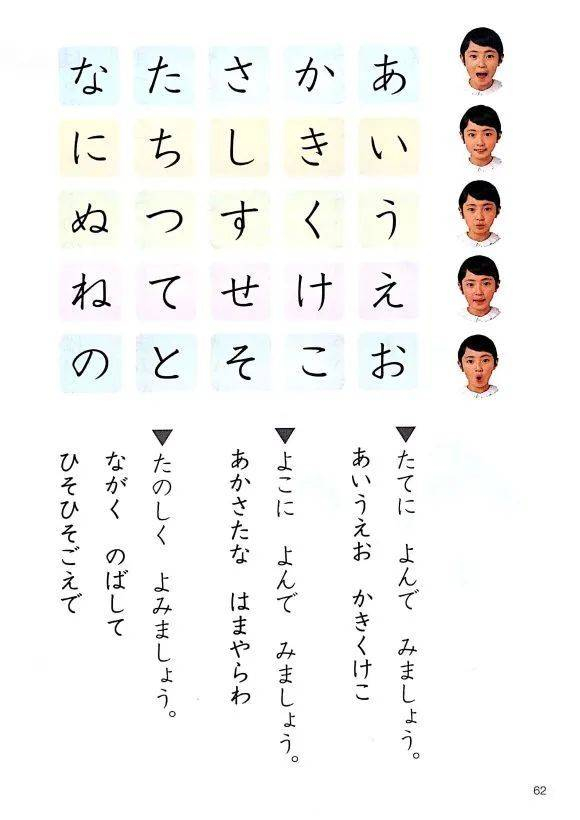 あいうえお
かきくけこ
さしすせそ
たちつてと
なにぬねの
▼たてに　よんで　みましょう。
あいうえお　かきくけこ
▼よこに　よんで　みましょう。
あかさたな　はまやらわ
▼たのしく　よみましょう。
ながく　のばして
ひそひそごえで
62